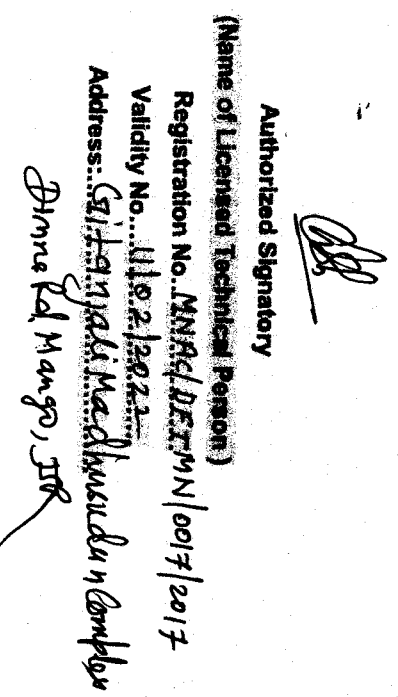 Authorized Signatory
(Name of Licensed Technical Person )
Registration No..MNAC/DEIMN/0017/2017
Validity No....11/02/2022
Address:-..Gitanjali Madhusudun Complex
Dimna Rd, Mango, JSR